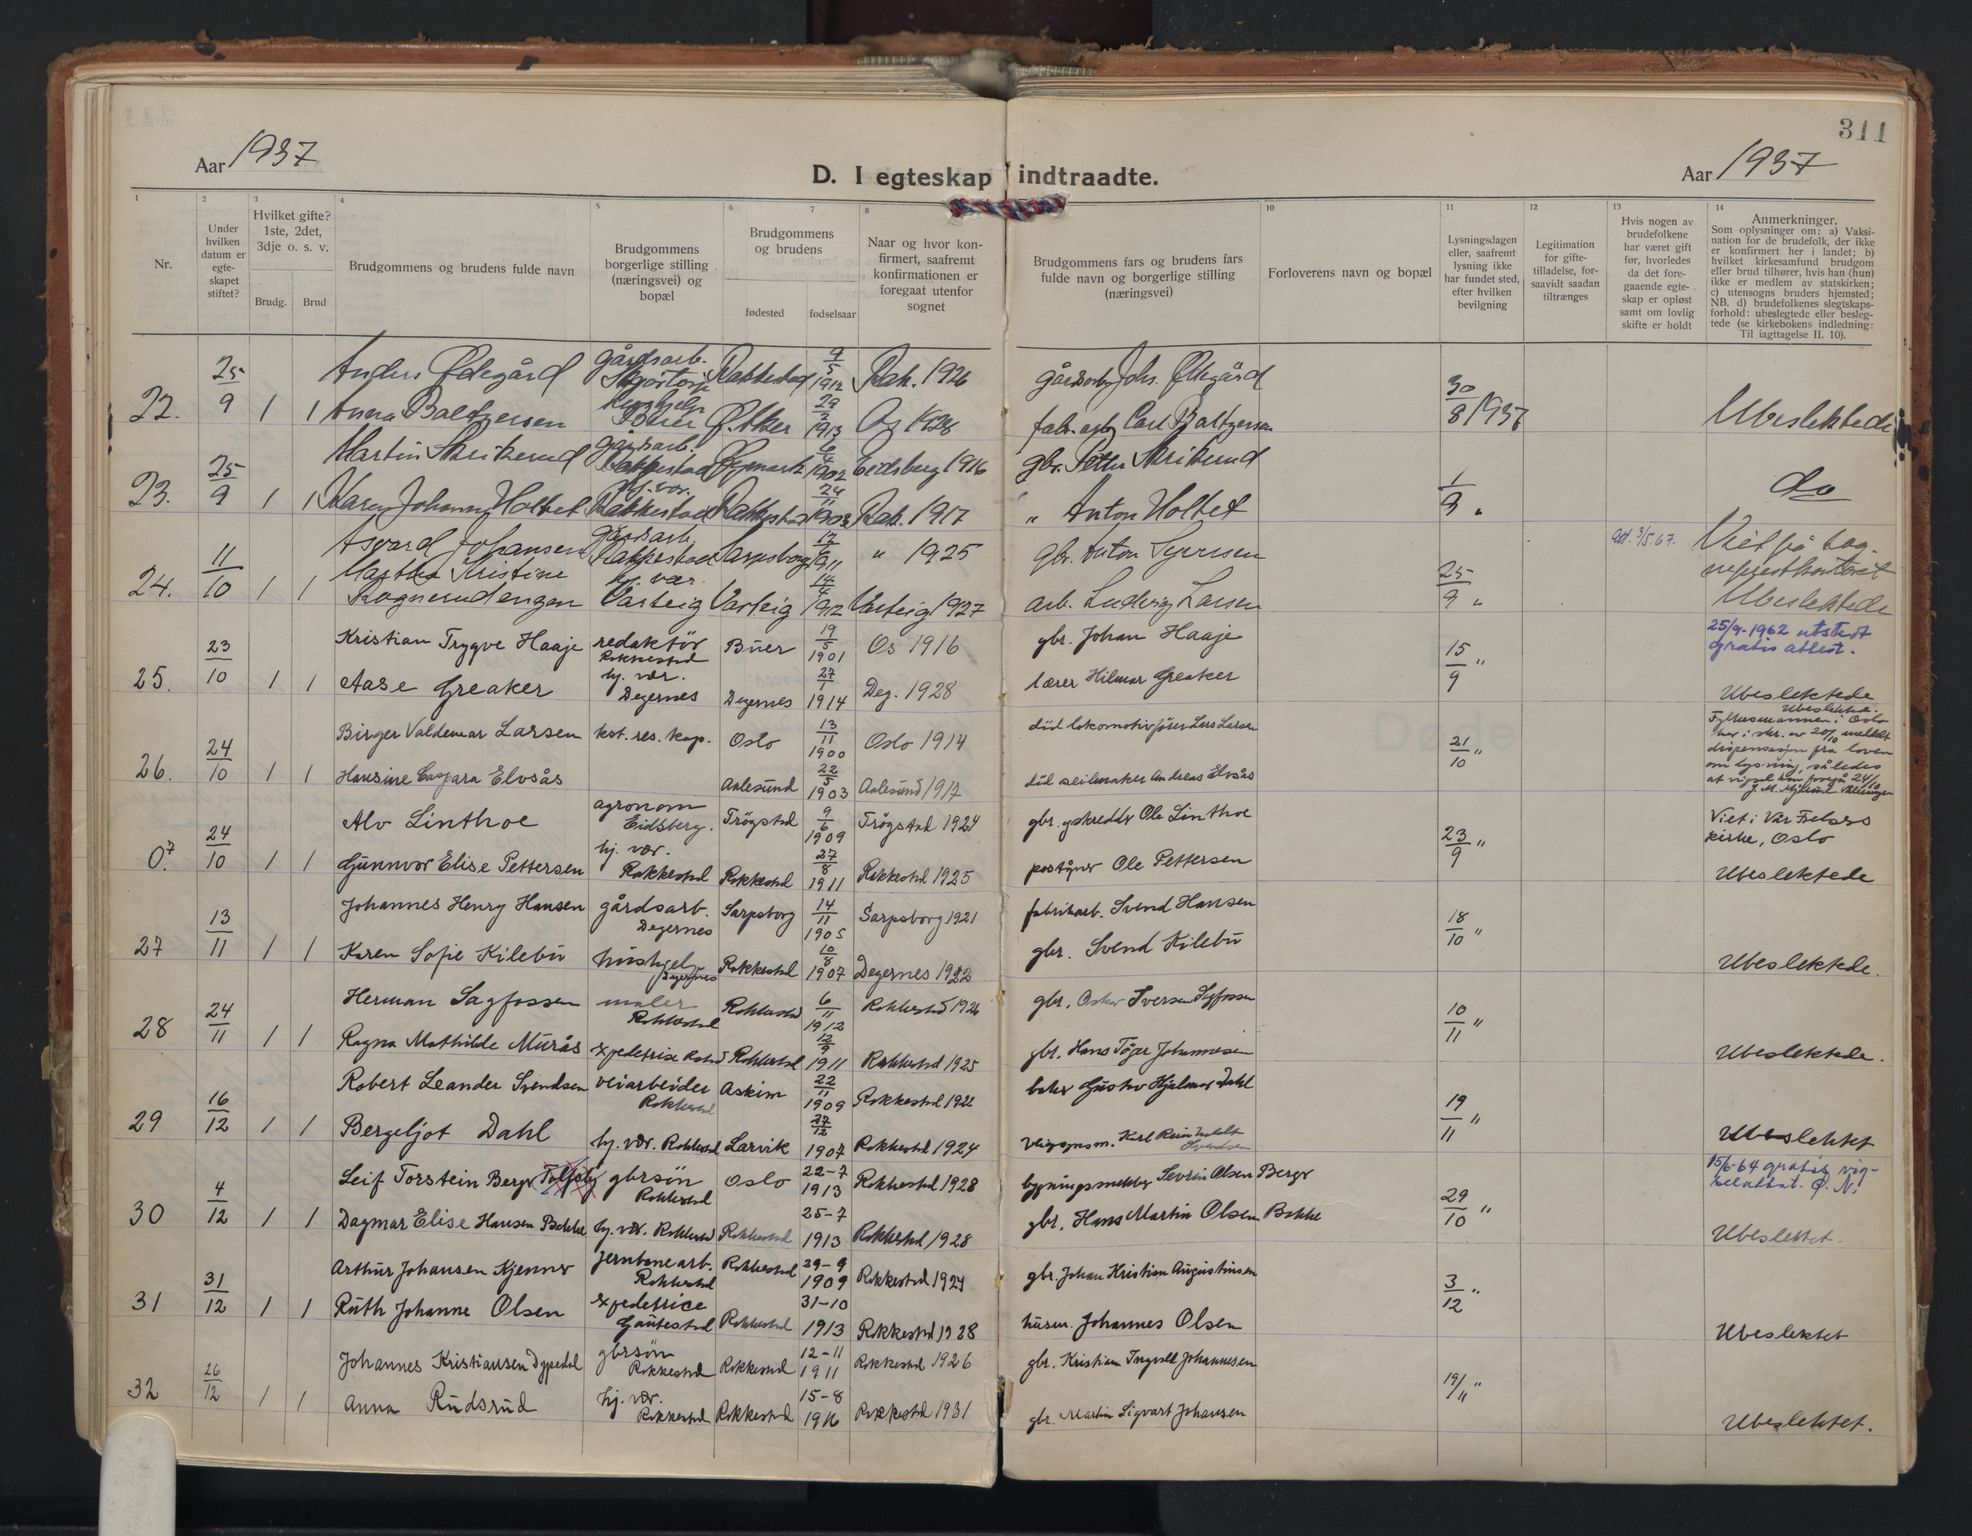 311
Aar 1937
D. I egteskap indtraadte.
Aar 1937
1 2 3 4 5 6 7 8 10 11 12 13 14
Nr.
Under hvilken datum er egteskapet stiftet?
Hvilket gifte? 1ste, 2det, 3dje o. s. v.
Brudg. Brud
Brudgommens og brudens fulde navn
Brudgommens borgerlige stilling (næringsvei) og bopæl
Brudgommens og brudens
fødested fødselsaar
Naar og hvor konfirmert, saafremt konfirmationen er foregaat utenfor sognet
Brudgommens fars og brudens fars fulde navn og borgerlige stilling (næringsvei)
Forloverens navn og bopæl
Lysningsdagen eller, saafremt lysning ikke har fundet sted, efter hvilken bevilgning
Legitimation for giftetilladelse, forsaavidt saadan tiltrænges
Hvis nogen av brudefolkene har været gift før, hvorledes da det foregaaende egteskap er opløst samt om lovlig skifte er holdt
Anmerkninger.
Som oplysninger om: a) Vaksination for de brudefolk, der ikke er konfirmert her i landet; b) hvilket kirkesamfund brudgom eller brud tilhører, hvis han (hun) ikke er medlem av statskirken; c) utensogns bruders hjemsted; NB. d) brudefolkenes slegtskapsforhold: ubeslegtede eller beslegtede (se kirkebokens indledning: Til iagttagelse II. 10).
Anders Ødegård gårdsarb. Rakkestad 9/5 1912 Rak. 1926 gårdsarb. Joh. Ødegård
22. 25/9 1 1 Anna Baltzersen Ø. Aker 29/2 1913 Ås 1928 fab. arb. Carl Baltzersen 30/8 1937 Ubeslektede
Martin Skrikerud gårdsarb. Rakkestad Øymark 1902 Eidsberg 1916 gbr. Petter Skrikerud
23. 25/9 1 1 Karen Johanne Holtet hj. vær. Rakkestad Rakkestad 24/11 1902 Rak. 1917 " Anton Holtet 1/9 " do
Asvard Johansen gårdsarb. Rakkestad Sarpsborg 1911 " 1925 gbr. Anton Syversen
24. 11/10 1 1 Martha Kristine Rognerudengen hj. vær. Varteig Varteig 14/4 1912 Varteig 1927 arb. Ludvig Larsen 25/9 " 3/5 67. Viet på Ubeslektede
Kristian Trygve Haaje redaktør Rakkestad Buer 19/5 1901 Os 1916 gbr. Johan Haaje 25/9-1962 utstedt gratis attest.
25. 23/10 1 1 Aase Greaker hj. vær. Degernes Degernes 27/1 1914 Deg. 1928 lærer Hilmar Greaker 15/9 " Ubeslektede
Birger Valdemar Larsen kst. res. kap. Oslo 13/11 1900 Oslo 1914 död lokomotivfører Lars Larsen
26. 24/10 1 1 Hansine Caspara Elvsås Aalesund 22/5 1903 Aalesund 1917 död seilmaker Andreas Elvsås 21/10 " Ubeslektede. Fylkesmannen i Oslo har i skr. av 20/10 meddelt dispensasjon fra loven om lysning, således at vigsel kan foregå 24/10
Alv Linthoe agronom Eidsberg. Trøgstad 9/6 1909 Trøgstad 1924 gbr. og skredder Ole Linthoe Viet i Vår Frelsers kirke, Oslo
0.7 24/10 1 1 Gunnvor Elise Pettersen hj. vær. Rakkestad Rakkestad 27/8 1911 Rakkestad 1925 poståpner Ole Pettersen 23/9 " Ubeslektede
Johannes Henry Hansen gårdsarb. Degernes Sarpsborg 14/11 1905 Sarpsborg 1921 fabrikarb. Svend Hansen
27 13/11 1 1 Karen Sofie Kilebu hushjelp Degernes Rakkestad 10/8 1907 Degernes 1922 gbr. Svend Kilebu 18/10 " Ubeslektede.
Herman Sagfossen maler Rakkestad Rakkestad 6/11 1912 Rakkestad 1926 gbr. Oskar Iversen Sagfossen
28 24/11 1 1 Ragna Mathilde Murås expeditrise Rakkestad 12/9 1911 Rakkestad 1925 gbr. Hans Johannesen 10/11 " Ubeslektede.
Robert Leander Svendsen veiarbeider Rakkestad Askim 22/11 1909 Rakkestad baker Gustav Hjalmar Dahl
29 16/12 1 1 Bergeljot Dahl hj. vær. Rakkestad Larvik 27/12 1907 Rakkestad 1924 Karl Reinholdt Svendsen 19/11 " Ubeslektet
Leif Torstein Berger gbrsøn Rakkestad Oslo 22-7 1913 Rakkestad 1928 Severin Olsen Berger 15/6-64 gratis vigselattest.
30 4/12 1 1 Dagmar Elise Hansen Bakke hj. vær. Rakkestad Rakkestad 25-7 1913 Rakkestad 1928 gbr. Hans Martin Olsen Bakke 29/10 " Ubeslektet.
Arthur Johansen Kjenner jernbanearb. Rakkestad Rakkestad 29-9 1909 Rakkestad 1924 gbr. Johan Kristian Augustinsen
31 31/12 1 1 Ruth Johanne Olsen expeditrice Gautestad Rakkestad 31-10 1913 Rakkestad 1928 husm. Johannes Olsen 3/12 " Ubeslektet
Johannes Kristiansen Dypedal gbrsøn Rakkestad Rakkestad 12-11 1911 Rakkestad 1926 gbr. Kristian Ingvald Johannesen
32 26/12 1 1 Anna Rudsrud hj. vær. Rakkestad Rakkestad 15-8 1916 Rakkestad 1931 gbr. Martin Sigvart Johansen 19/11 " Ubeslektet.